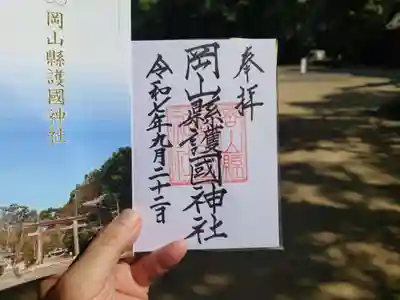 岡山縣護國神社
奉拝
岡山縣護國神社
令和七年九月二十二日